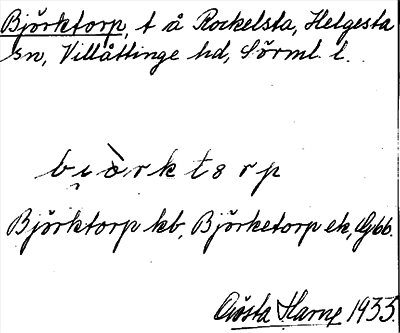 Björktorp, t å Rockelsta, Helgesta
sn, Villåttinge hd, Sörml. l.
bi̯ὰrktsrp
Björktorp kb, Björketorp ek, Gjbb.
Gösta Harne 1933.